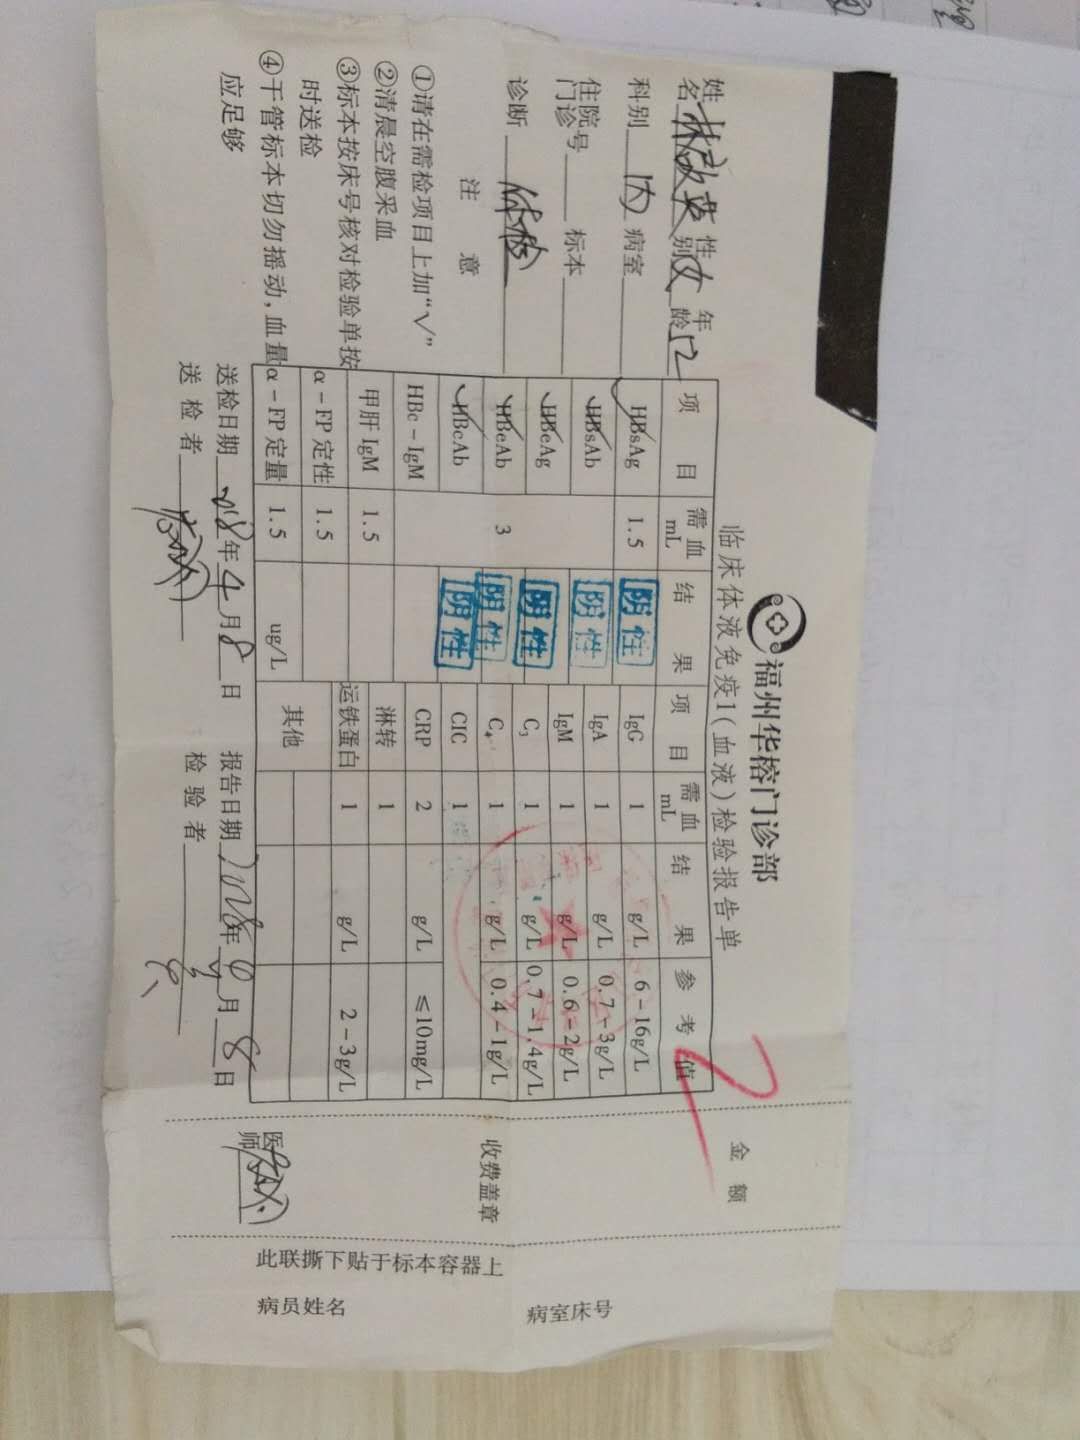 福州华榕门诊部
临床体液免疫1(血液)检验报告单
金额
姓名 性别 女 年龄 12
科别 内 病室
住院号 门诊 标本
诊断 体检
注意
①请在需检项目上加“√”
②清晨空腹采血
③标本按床号核对检验单按时送检
④干管标本切勿摇动,血量应足够
项目 需血mL 结果 项目 需血mL 结果 参考值
HBsAg 1.5 阴性 IgG 1 g/L 6-16g/L
HBsAb 阴性 IgA 1 g/L 0.7-3g/L
HBeAg 阴性 IgM 1 g/L 0.6-2g/L
HBeAb 3 阴性 C3 1 g/L 0.7-1.4g/L
HBcAb 阴性 C4 1 g/L 0.4-1g/L
HBc-IgM CIC 1
甲肝IgM 1.5 CRP 2 g/L ≤10mg/L
α-FP定性 1.5 淋转 1
α-FP定量 1.5 ug/L 运铁蛋白 1 g/L 2-3g/L
其他
送检日期 2018年4月8日 报告日期 2018年4月8日
送检者 检验者
收费盖章
医师
此联撕下贴于标本容器上
病员姓名 病室床号